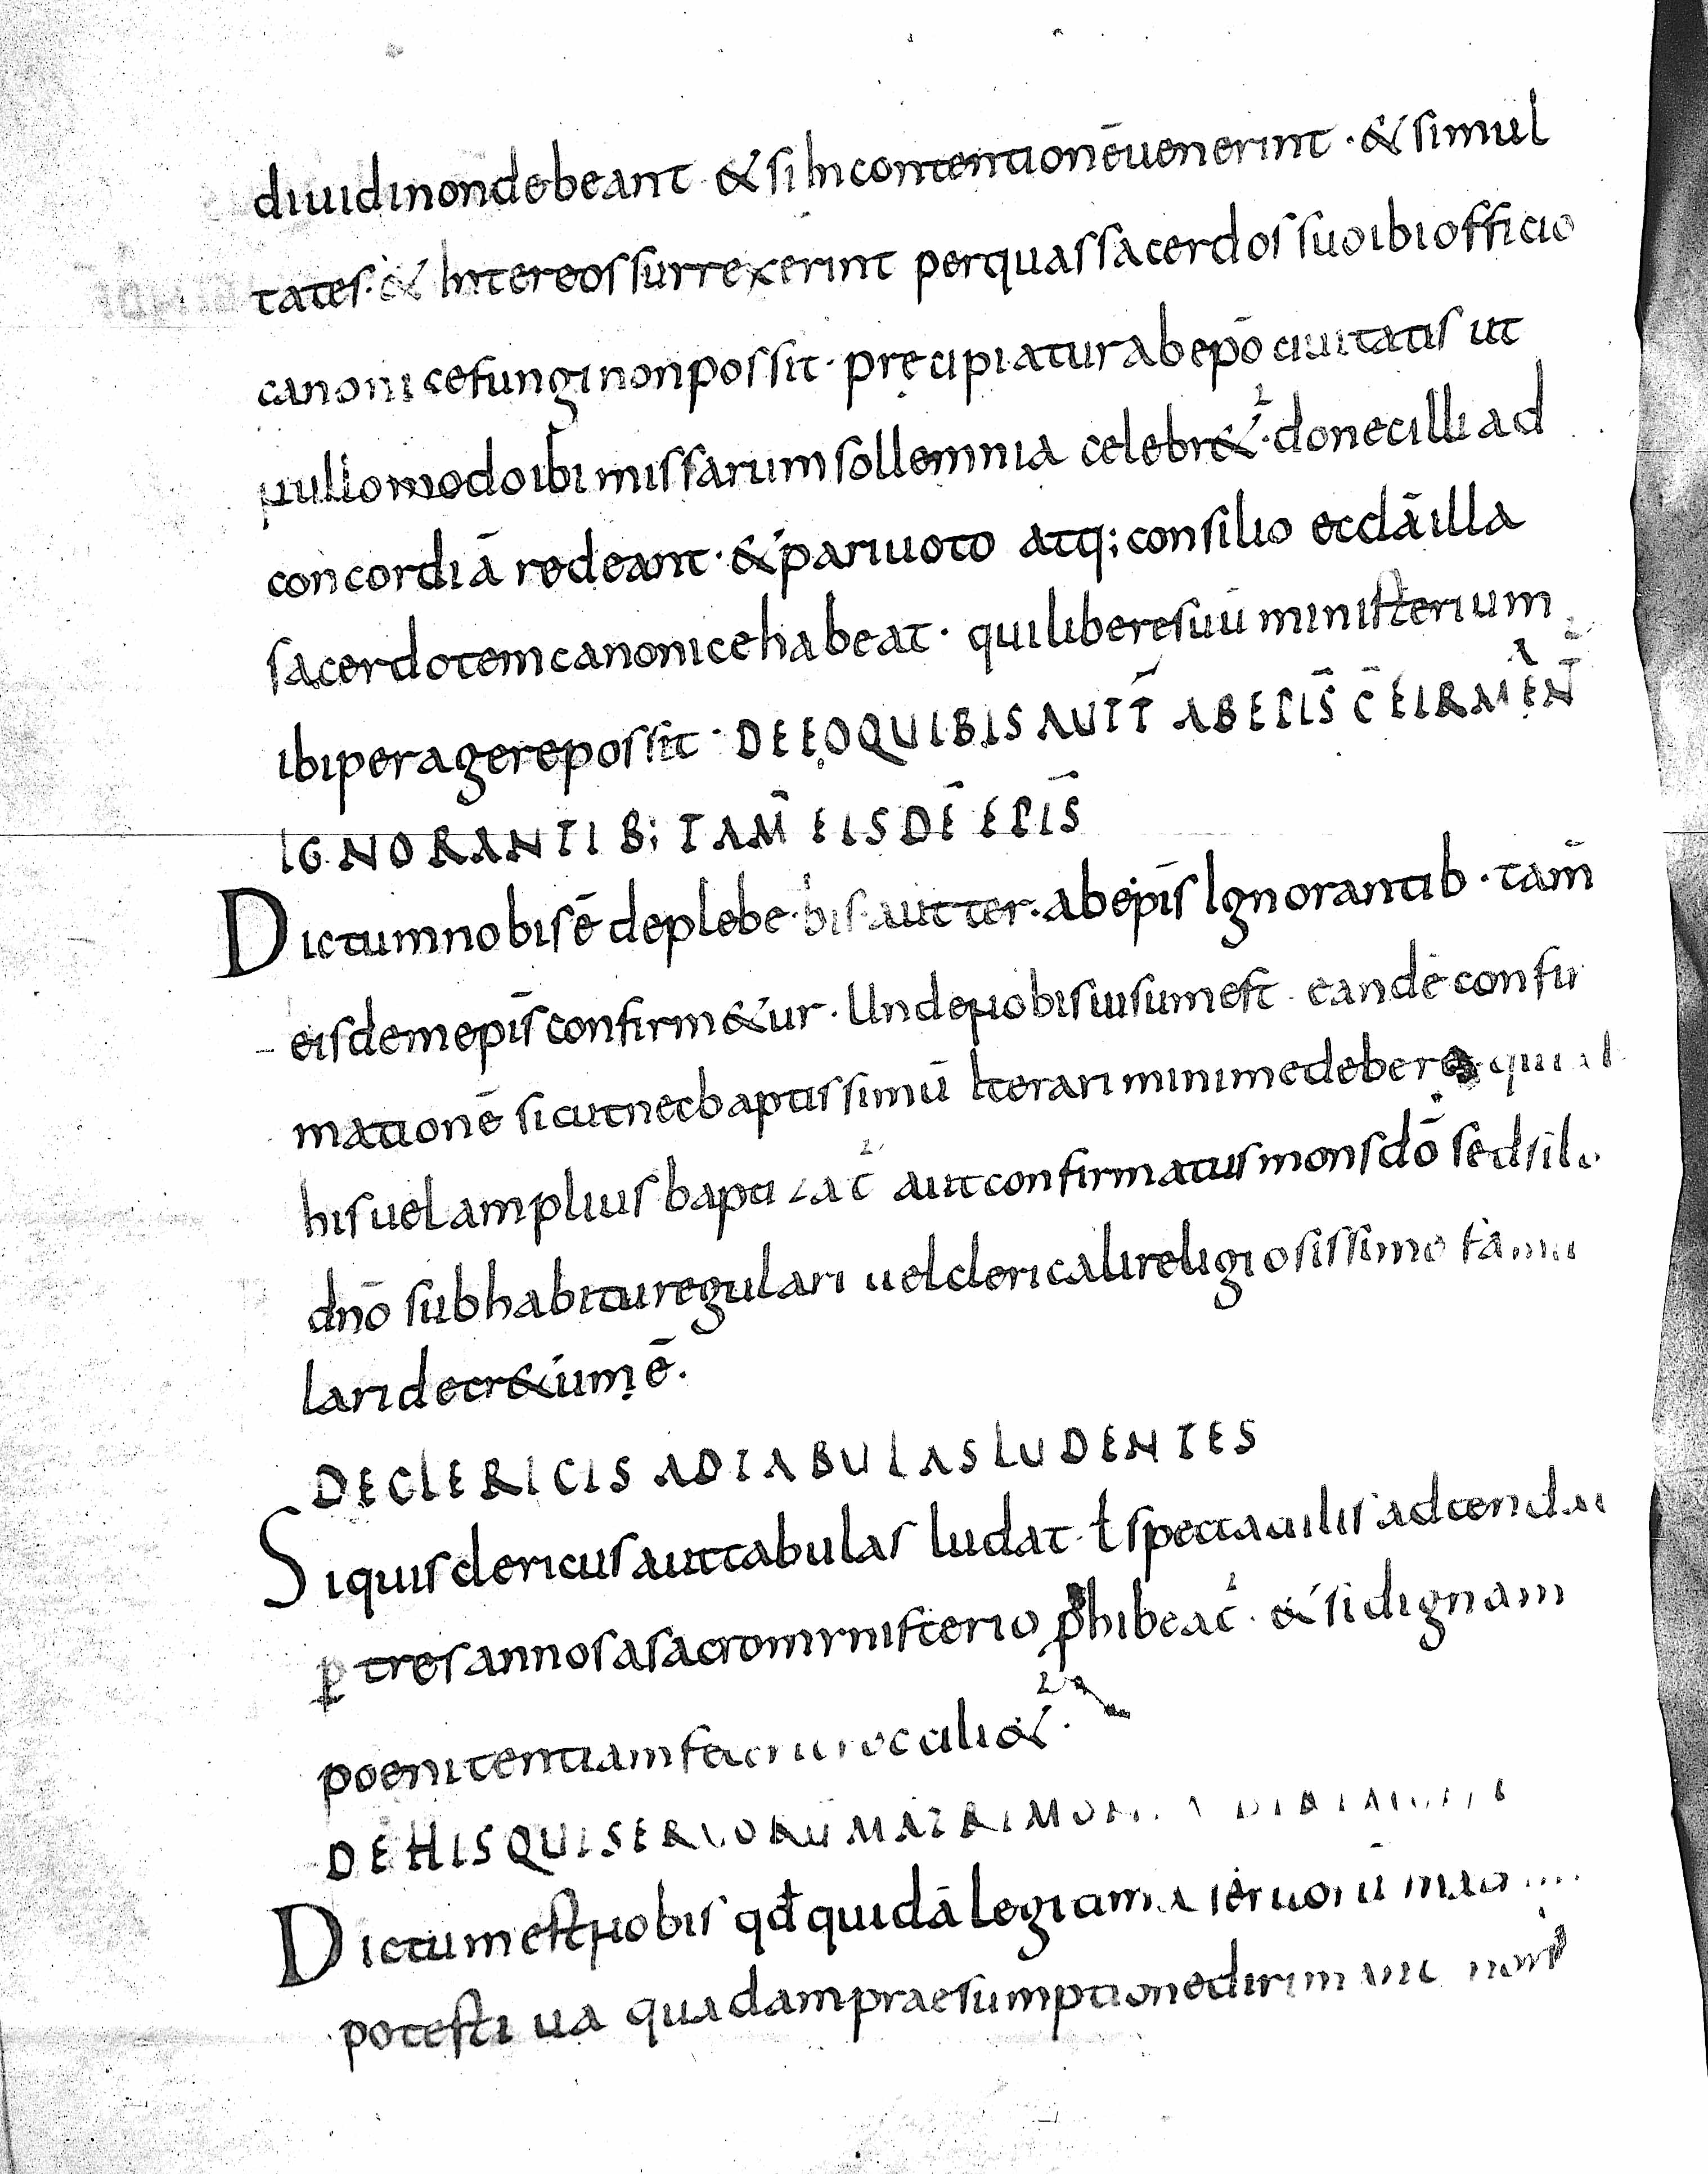 diuidi non debeant · & si in contentionē uenerint · & simul
tates · & inter eos surrexerint per quas sacerdos suo ibi officio
canonice fungi non possit · pręcipiatur ab ep̄o ciuitatis ut
nullo modo ibi missarum sollemnia celebr&ʼ · donec illi ad
concordiā redeant · & pari uoto atq; consilio eccl̄a illa
sacerdotem canonice habeat · qui libere suū ministerium
ibi peragere possit · DE EO QUI BIS AUT T̄ AB EPIS̄ C̄FIRMEN̄T
IGNORANTIB; TAM̄ EISDĒ EPIS̄
Dictum nobis ē de plebe · bis aut ter · ab epīs ignorantib · tam̄
eisdem epīs confirm&ur · Unde nobis uisum est eandē confir
mationē sicut nec baptissimū iterari minime debere
bis uel amplius baptizat̄ aut confirmatus non sc̄lo sed soli
dn̄o sub habitu regulari uel clericali religiosissimo famu
lari decr&um ē.
DE CLERICIS AD TABULAS LUDENTES
Siquis clericus aut tabulas ludat · ł spectaculis
ꝑ tres annos a sacro mynisterio ꝓhibeat̄ · & si dignam
poenitentiam
DE HIS QUI SERUORŪ MATRIMONIA
Dictum est nobis qđ quidā legiama seruorū
potestiua quadam praesumptione dirimant non